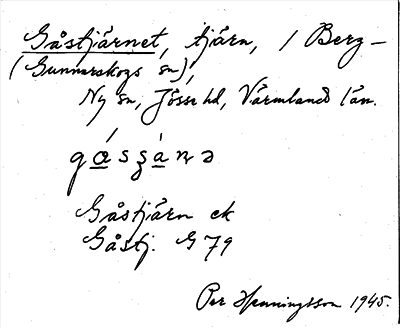 Gåstjärnet, tjärn, / Berg-
(Gunnarskogs sn),
Ny sn, Jösse hd, Värmlands län.
gåsʒànə
Gåstjärn ek
Gåstj. G 79
Per Henningsson 1945.